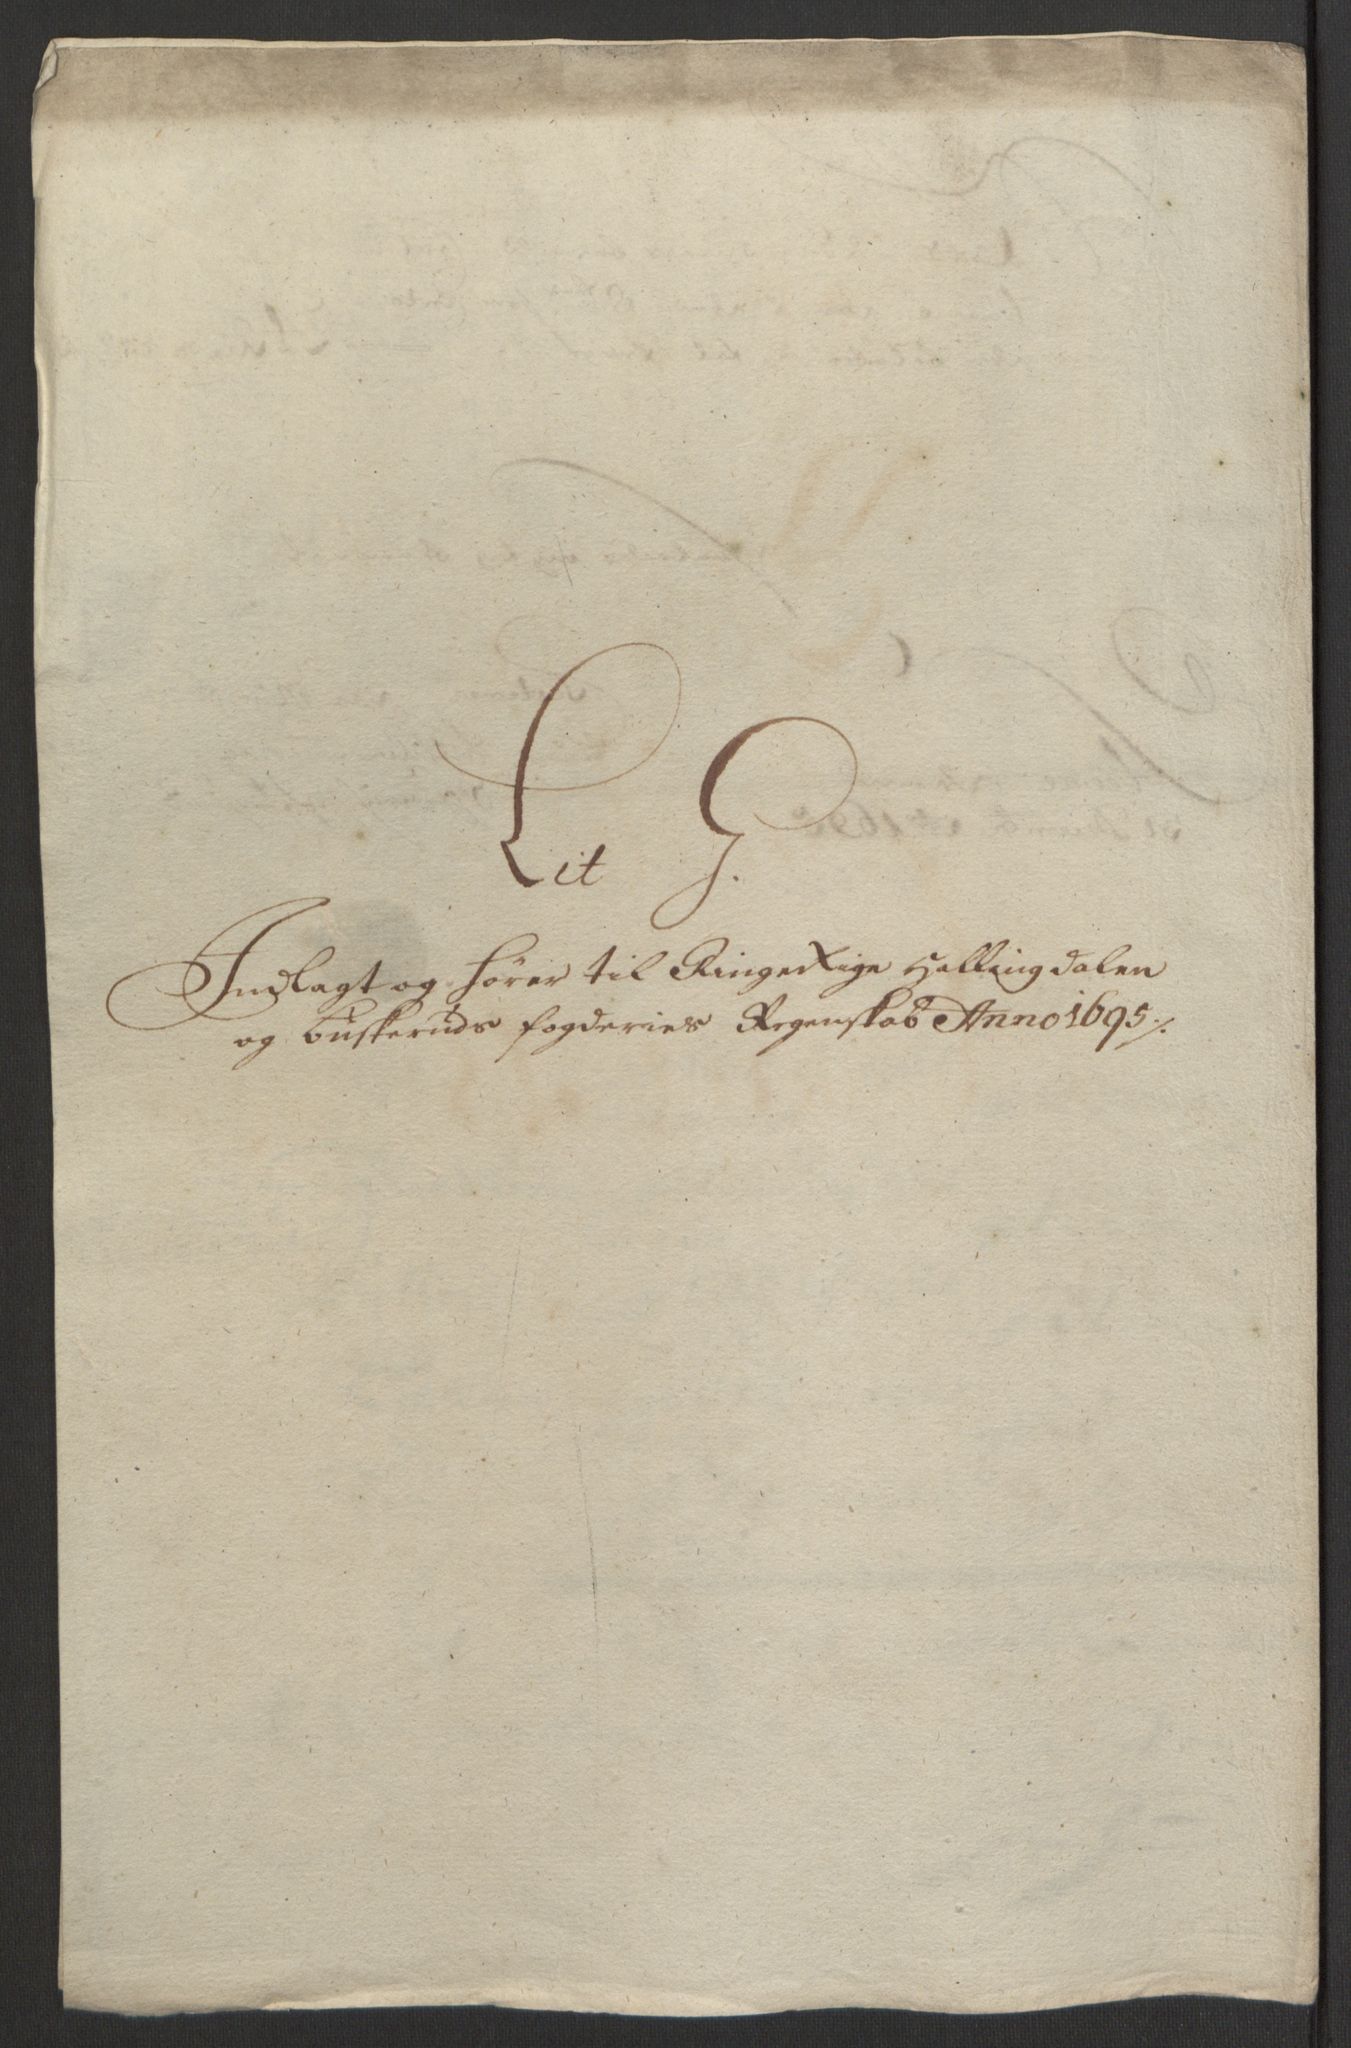 Lit G.
Indlagt og hører til Ringerige Hallingdalen
og Buskeruds fogderies Regenskab Anno 1695 ./.